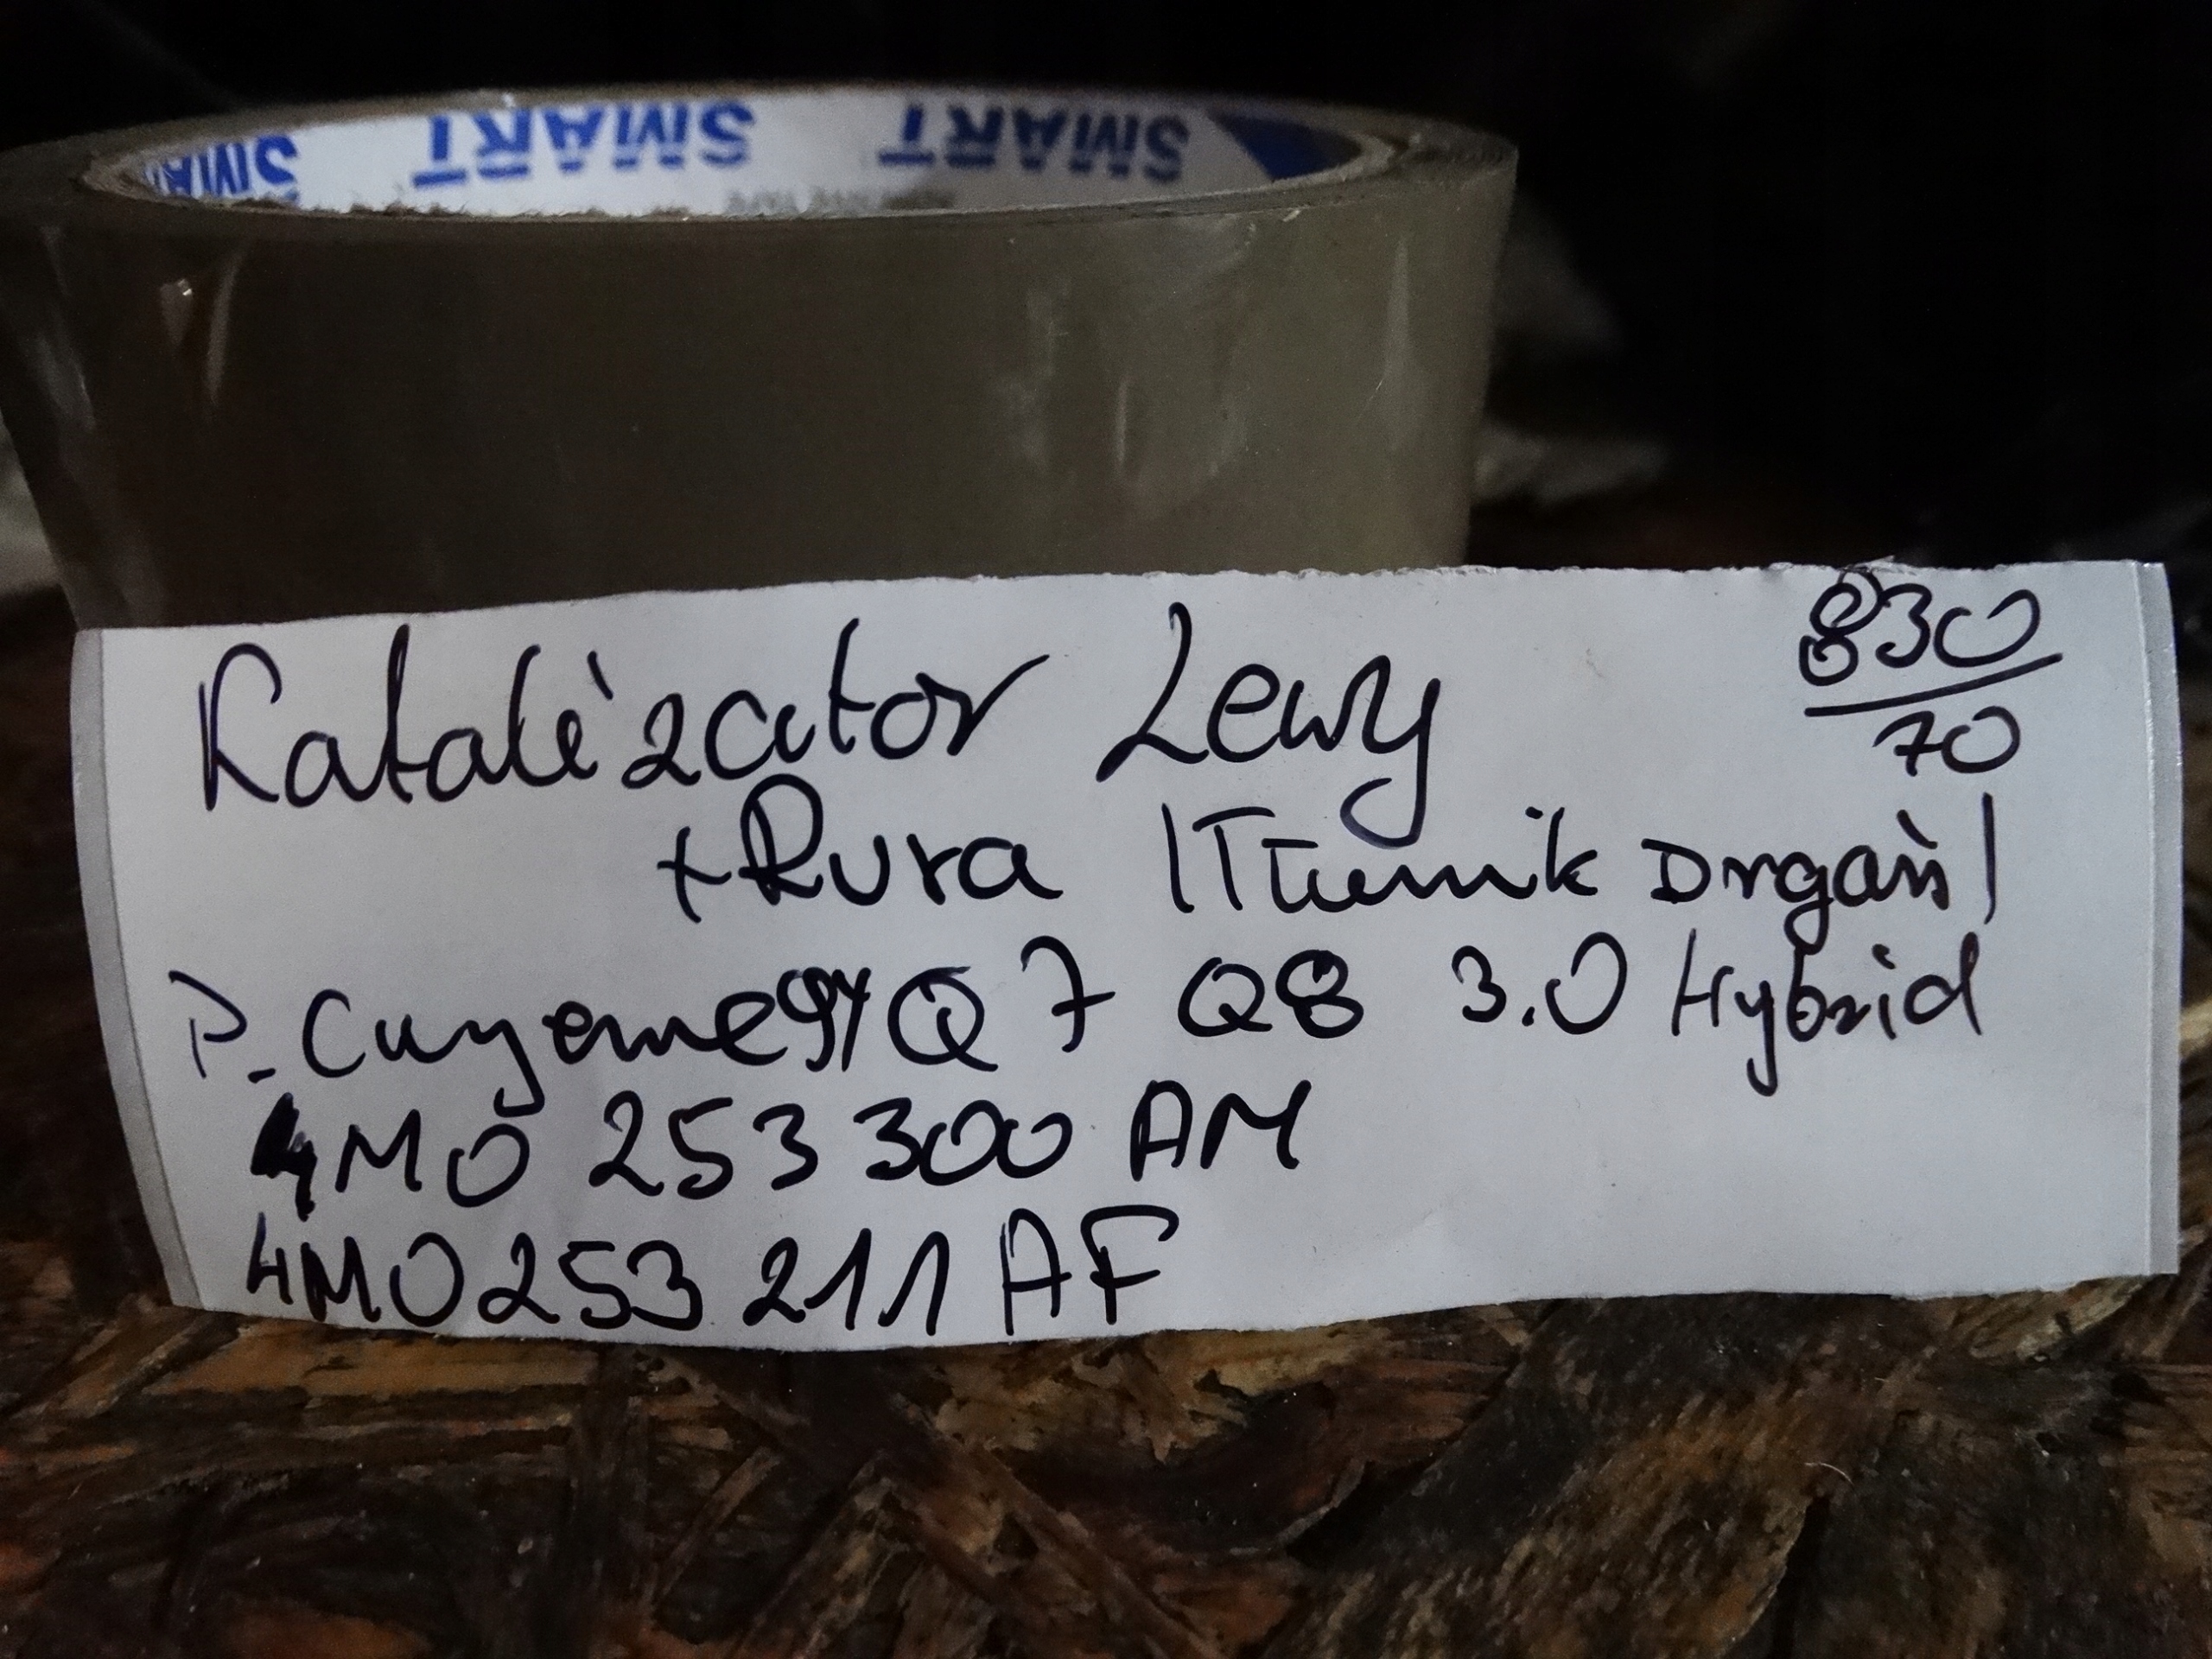 SMART SMART SMA
830
70
Katalizator Lewy
+Rura |Tłumik Drgań|
P. Cayenne 9Y Q7 Q8 3.0 Hybrid
4M0 253 300 AM
4M0253 211 AF